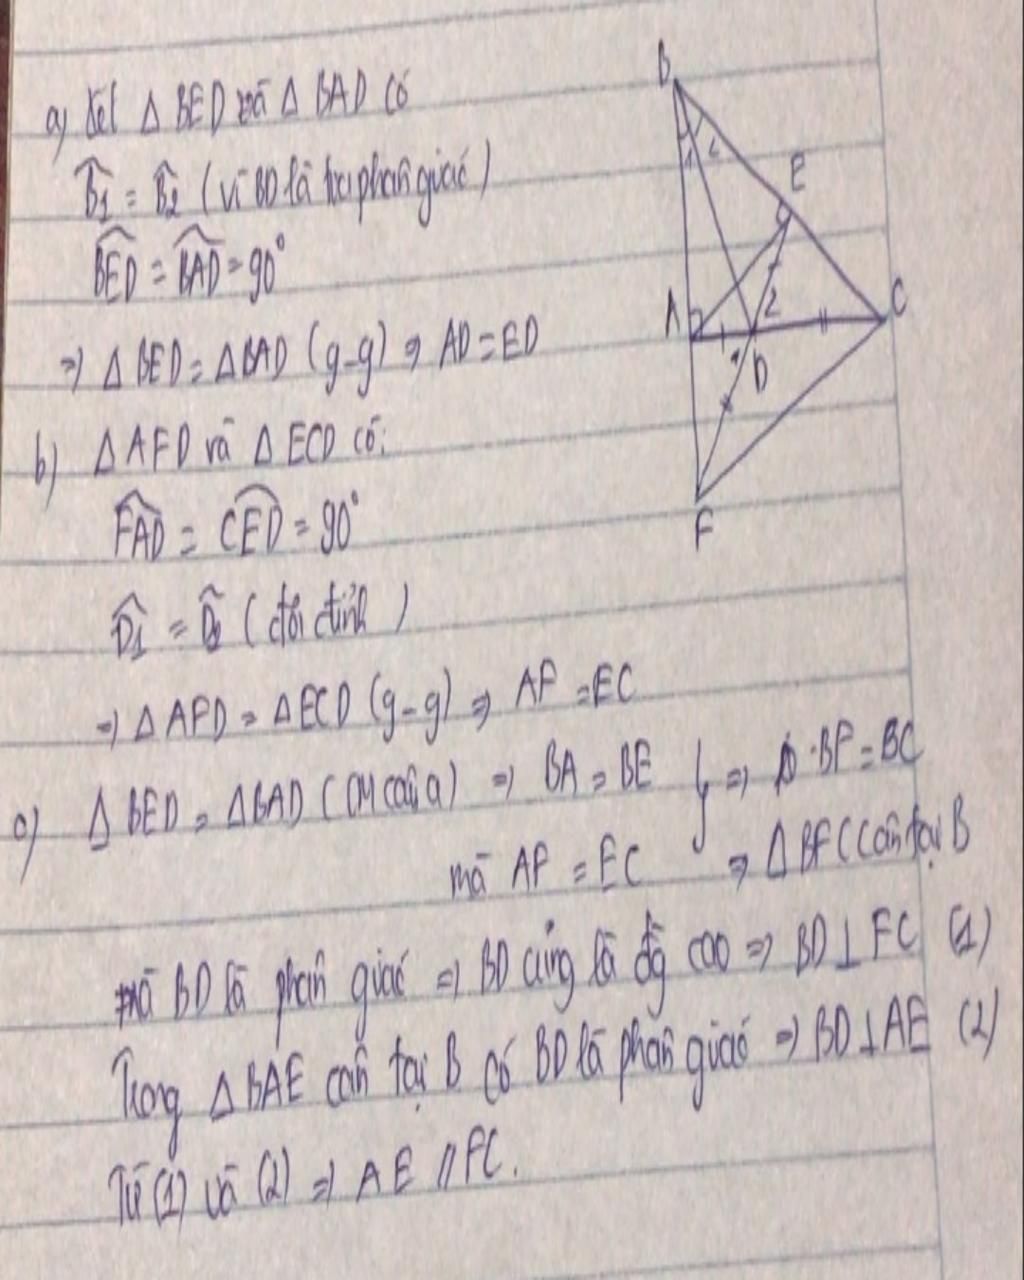 a) Xét Δ BED và Δ BAD có
B̂1 = B̂2 (vì BD là tia phân giác)
BED = BAD = 90°
=> Δ BED = Δ BAD (g-g) => AD = ED
b) Δ AFD và Δ ECD có:
FAD = CED = 90°
D̂1 = D̂2 (đối đỉnh)
=> Δ AFD = Δ ECD (g-g) => AF = EC
c) Δ BED = Δ BAD (CM câu a) => BA = BE } => BF = BC
mà AF = EC => Δ BFC cân tại B
mà BD là phân giác => BD cũng là đg cao => BD ⊥ FC (1)
Trong Δ BAE cân tại B có BD là phân giác => BD ⊥ AE (2)
Từ (1) và (2) => AE // FC.
B
1 2
E
A
2
C
1
D
F